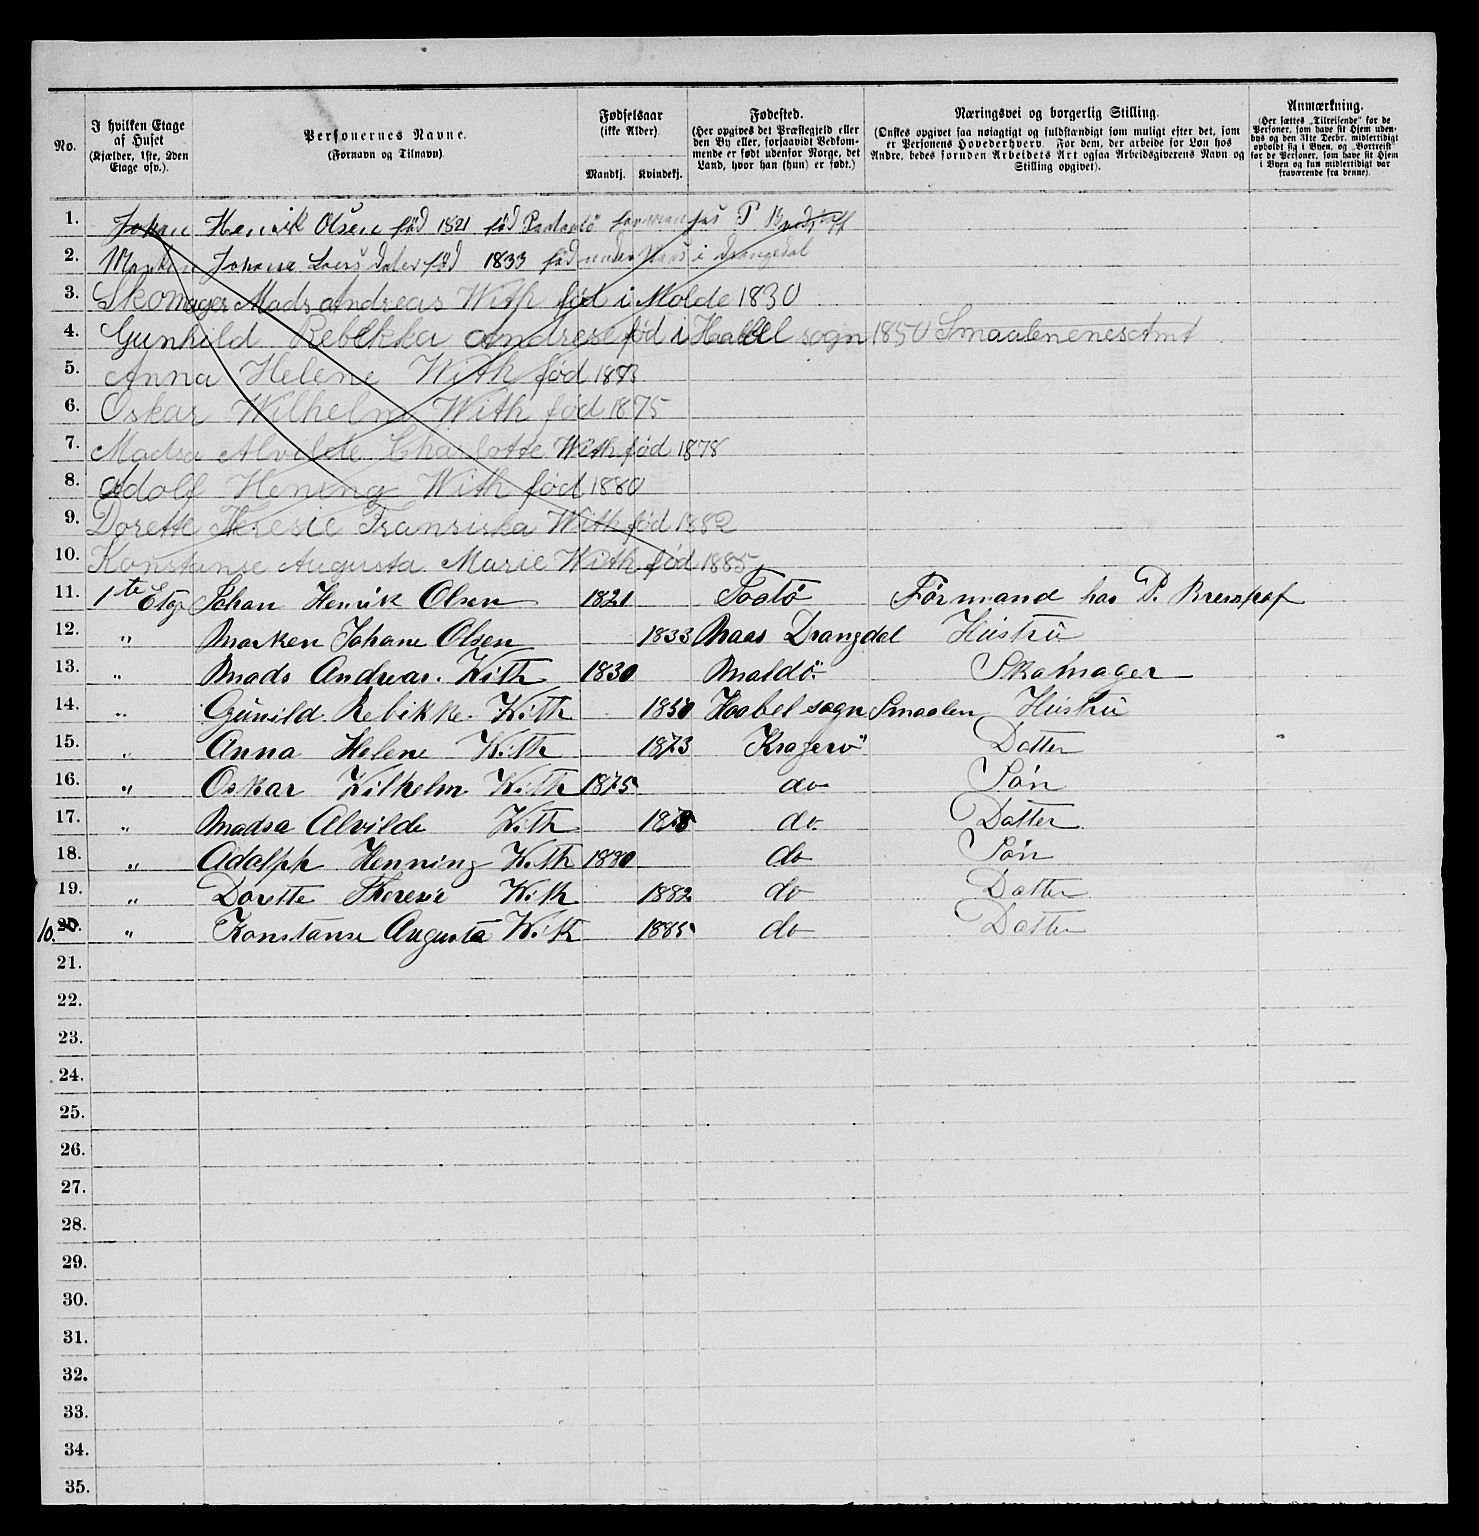 No.
I hvilken Etage
af Huset
(Kjælder, 1ste, 2den
Etage osv.).
Personernes Navne.
(Fornavn og Tilnavn)
Fødselsaar
(ikke Alder)
Mandkj.
Kvindekj.
Fødested.
(Her opgives det Præstegjeld eller
den By eller, forsaavidt Vedkom-
mende er født udenfor Norge, det
Land, hvor han (hun) er født.)
Næringsvei og borgerlig Stilling.
(Ønskes opgivet saa nøiagtigt og fuldstændigt som muligt efter det, som
er Personens Hovederhverv. For dem, der arbeide for Løn hos
Andre, bedes foruden Arbeidets Art ogsaa Arbeidsgiverens Navn og
Stilling opgivet).
Anmærkning.
(Her sættes „Tilreisende“ for de
Personer, som have sit Hjem uden-
bys og den 31te Decbr. midlertidigt
opholdt sig i Byen, og „Bortreist“
for de Personer, som have sit Hjem
i Byen og kun midlertidigt var
fraværende fra denne).
1. Johan Henrik Olsen fød 1821 fød formman has P
2. Marken Johane Larsdater fød 1833 fød under i Drangedal
3. Skomager Mads Andreas With fød i Molde 1830
4. Gunhild Rebekka Andrese fød i Haabel sogn 1850 Smaalenenes Amt
5. Anna Helene With fød 1873
6. Oskar Wilhelm With fød 1875
7. Madsa Alvilde Charlotte With fød 1878
8. Adolf Hening With fød 1880
9. Dorette Theresie Fransiska With fød 1882
10. Konstanse Augusta Marie With fød 1885
11. 1te Etage Johan Henrik Olsen 1821 Tostö Formand hos P.
12. " Marken Johane Olsen 1833 Naas Drangdal Hustru
13. " Mads Andreas. With 1830 Moldö Skomager
14. " Gunild Rebikke With 1850 Haabel sogn Smaalen Hustru
15. " Anna Helene With 1873 Kragerö Datter
16. " Oskar Wilhelm With 1875 do Sön
17. " Madsa Alvilde With 1878 do. Datter
18. " Adolph Henning With 1880 do Sön
19. " Dorette Theresie With 1882 do Datter
10. 20. " Konstanse Augusta With 1885 do Datter
21.
22.
23.
24.
25.
26.
27.
28.
29.
30.
31.
32.
33.
34.
35.